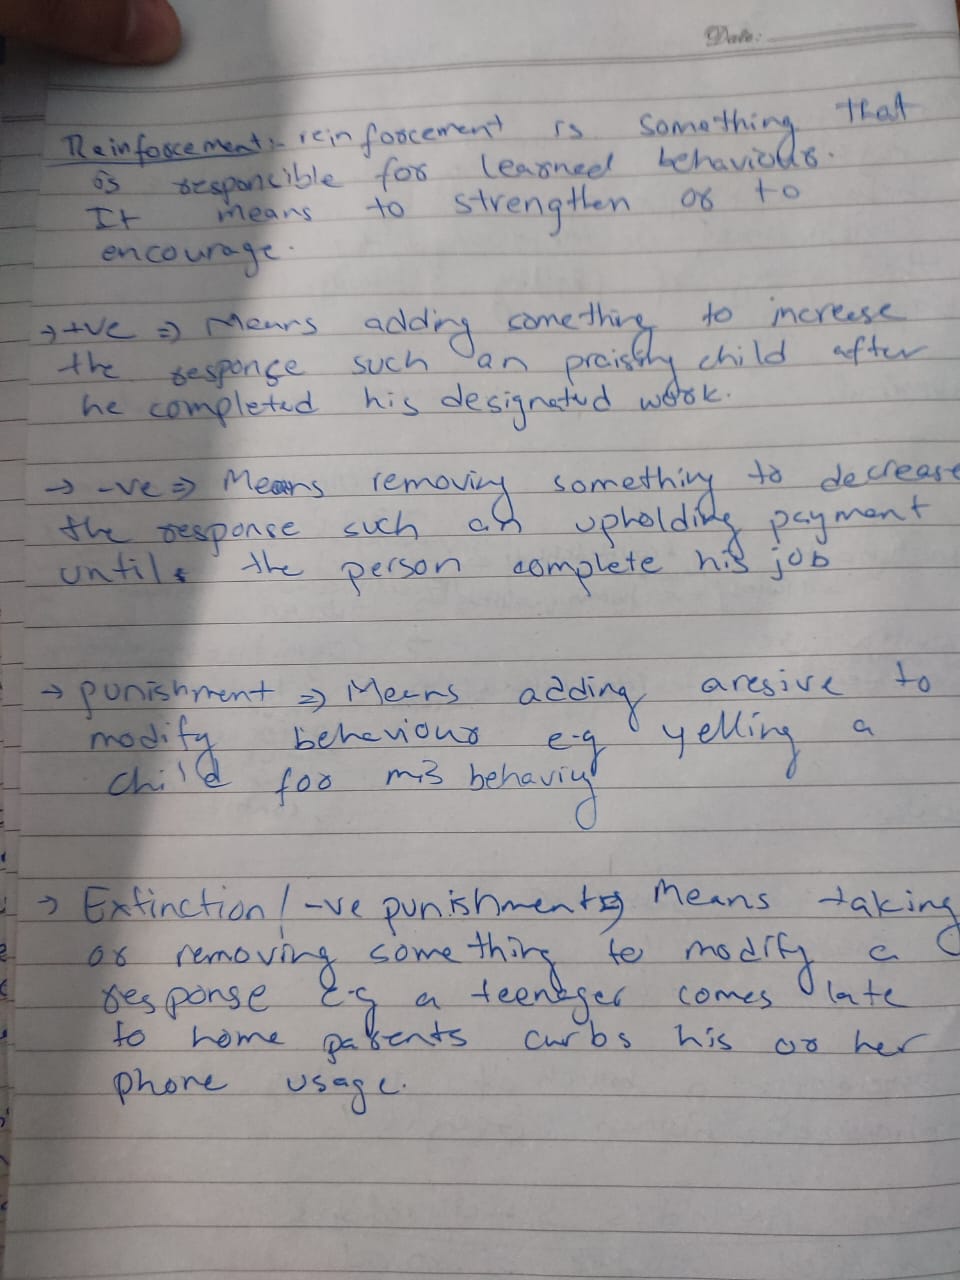 Date:
Reinforcement:- reinforcement is something that
is responcible for learned behaviours.
It means to strengthen or to
encourage.
→ +ve ⇒ Means adding something to increase
the response such an praising child after
he completed his designated work.
→ -ve ⇒ Means removing something to decrease
the response such an upholding payment
until the person complete his job
→ punishment ⇒ Means adding aresive to
modify behaviour e.g yelling a
child for misbehaving
→ Extinction / -ve punishment ⇒ Means taking
or removing something to modify a
response e.g a teenager comes late
to home parents curbs his or her
phone usage.